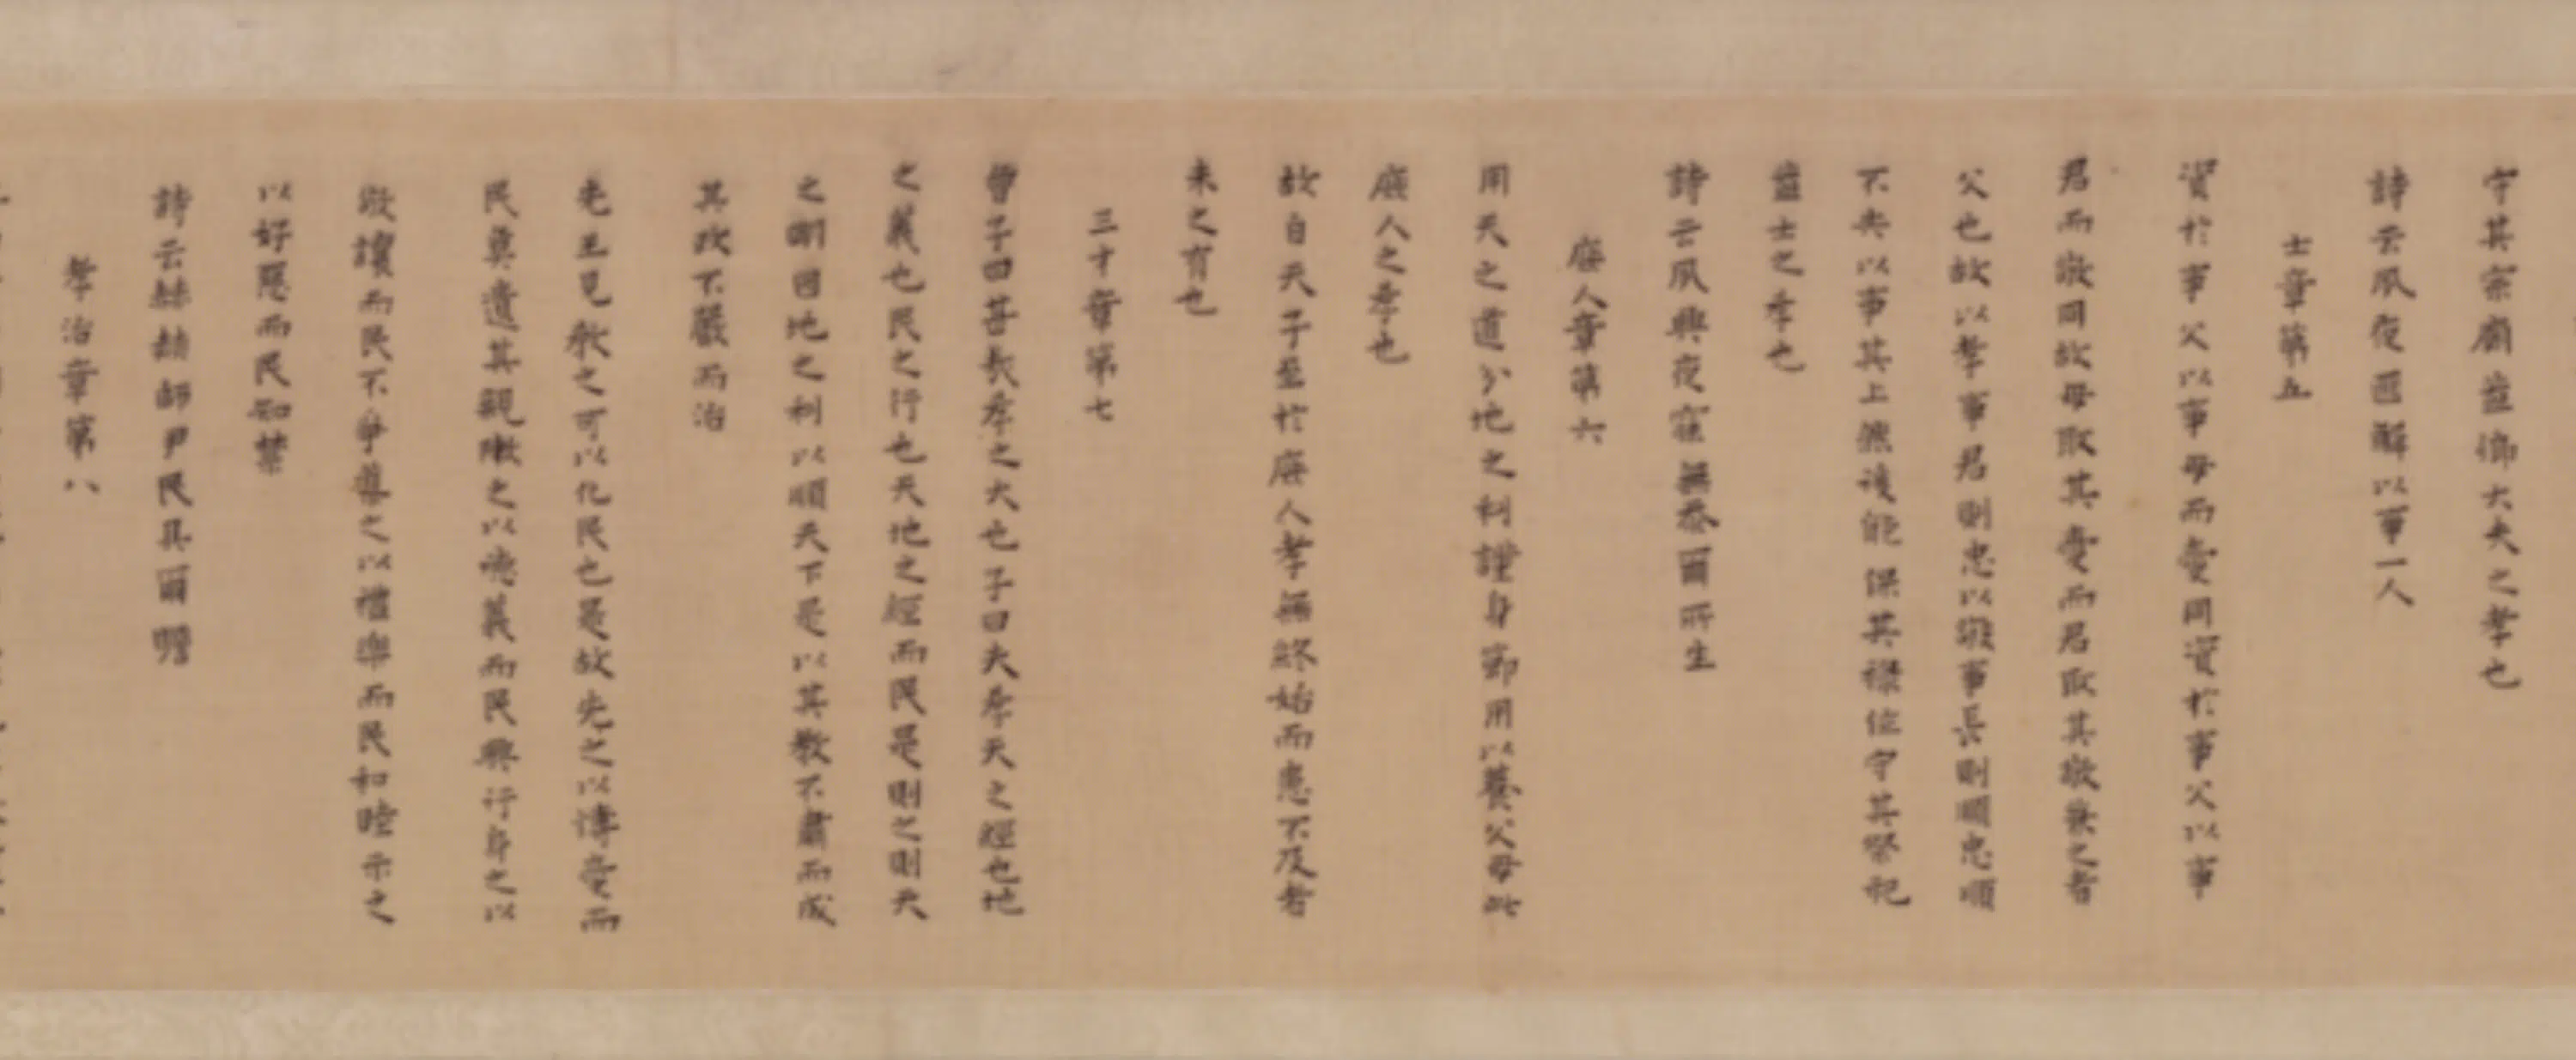 守其宗廟蓋卿大夫之孝也
詩云夙夜匪懈以事一人
士章第五
資於事父以事母而愛同資於事父以事
君而敬同故母取其愛而君取其敬兼之者
父也故以孝事君則忠以敬事長則順忠順
不失以事其上然後能保其祿位守其祭祀
蓋士之孝也
詩云夙興夜寐無忝爾所生
庶人章第六
用天之道分地之利謹身節用以養父母此
庶人之孝也
故自天子至於庶人孝無終始而患不及者
未之有也
三才章第七
曾子曰甚哉孝之大也子曰夫孝天之經也地
之義也民之行也天地之經而民是則之則天
之明因地之利以順天下是以其教不肅而成
其政不嚴而治
先王見教之可以化民也是故先之以博愛而
民莫遺其親陳之以德義而民興行身之以
敬讓而民不爭導之以禮樂而民和睦示之
以好惡而民知禁
詩云赫赫師尹民具爾瞻
孝治章第八